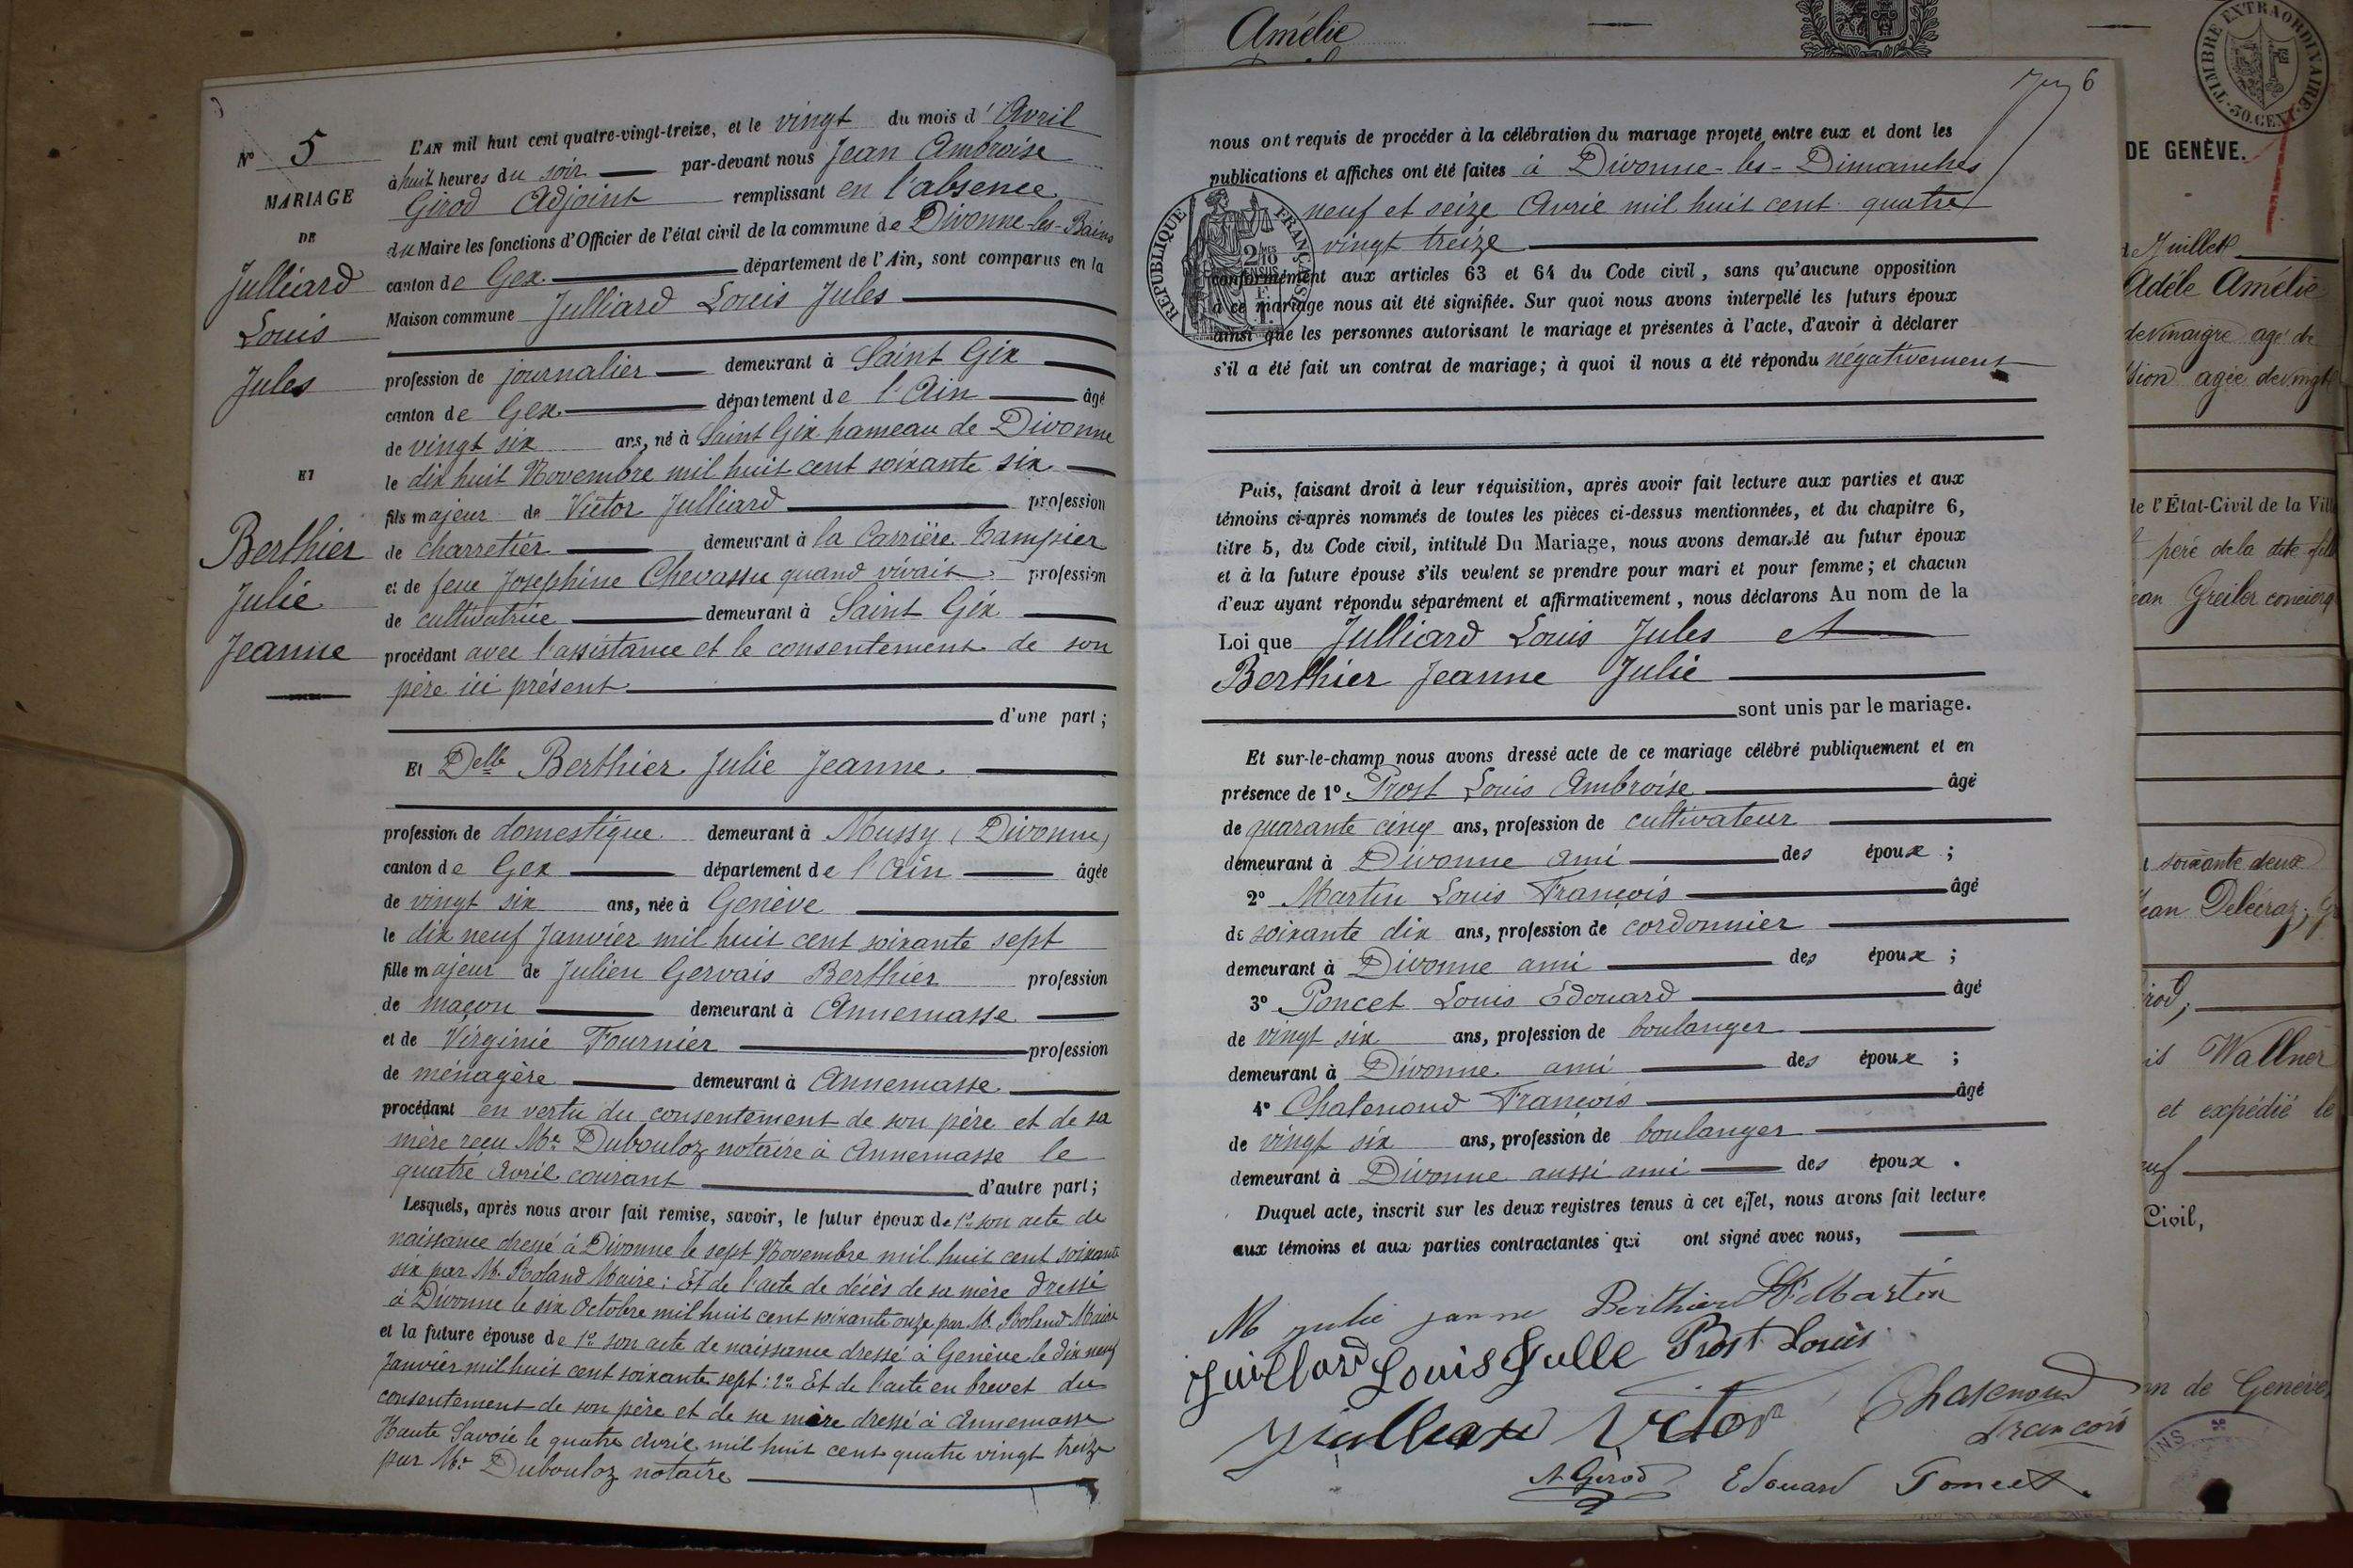 N° 5
MARIAGE
DE
Julliard
Louis
Jules
ET
Berthier
Julie
Jeanne
L'AN mil huit cent quatre-vingt-treize, et le vingt du mois d'Avril
à huit heures du soir par-devant nous Jean Ambroise
Girod Adjoint remplissant en l'absence
du Maire les fonctions d'Officier de l'état civil de la commune de Divonne-les-Bains
canton de Gex département de l'Ain, sont comparus en la
Maison commune Julliard Louis Jules
profession de journalier demeurant à Saint Gix
canton de Gex département de l'Ain âgé
de vingt six ans, né à Saint Gix hameau de Divonne
le dix huit Novembre mil huit cent soixante six
fils majeur de Victor Julliard profession
de charretier demeurant à la Carrière
et de feue Josephine Chevassu quand vivait profession
de cultivatrice demeurant à Saint Gix
procédant avec l'assistance et le consentement de son
père ici présent
d'une part;
Et Delle Berthier Julie Jeanne
profession de domestique demeurant à Mussy (Divonne)
canton de Gex département de l'Ain âgée
de vingt six ans, née à Genève
le dix neuf Janvier mil huit cent soixante sept
fille majeur de Julien Gervais Berthier profession
de maçon demeurant à Annemasse
et de Virginie Fournier profession
de ménagère demeurant à Annemasse
procédant en vertu du consentement de son père et de sa
mère reçu Me Dubouloz notaire à Annemasse le
quatre Avril courant d'autre part;
Lesquels, après nous avoir fait remise, savoir, le futur époux de 1° son acte de
naissance dressé à Divonne le sept Novembre mil huit cent soixante
six par M. Roland Maire: Et de l'acte de décès de sa mère dressé
à Divonne le six Octobre mil huit cent soixante onze par M. Roland Maire
et la future épouse de 1° son acte de naissance dressé à Genève le dix neuf
Janvier mil huit cent soixante sept: 2° Et de l'acte en brevet du
consentement de son père et de sa mère dressé à Annemasse
Haute Savoie le quatre Avril mil huit cent quatre vingt treize
par Me Dubouloz notaire
6
nous ont requis de procéder à la célébration du mariage projeté entre eux et dont les
publications et affiches ont été faites à Divonne-les-Dimanches
neuf et seize Avril mil huit cent quatre
vingt treize
REPUBLIQUE FRANÇAISE
conformément aux articles 63 et 64 du Code civil, sans qu'aucune opposition
à ce mariage nous ait été signifiée. Sur quoi nous avons interpellé les futurs époux
ainsi que les personnes autorisant le mariage et présentes à l'acte, d'avoir à déclarer
s'il a été fait un contrat de mariage; à quoi il nous a été répondu négativement
Puis, faisant droit à leur réquisition, après avoir fait lecture aux parties et aux
témoins ci-après nommés de toutes les pièces ci-dessus mentionnées, et du chapitre 6,
titre 5, du Code civil, intitulé Du Mariage, nous avons demandé au futur époux
et à la future épouse s'ils veulent se prendre pour mari et pour femme; et chacun
d'eux ayant répondu séparément et affirmativement, nous déclarons Au nom de la
Loi que Julliard Louis Jules et
Berthier Jeanne Julie
sont unis par le mariage.
Et sur-le-champ nous avons dressé acte de ce mariage célébré publiquement et en
présence de 1° Prost Louis Ambroise âgé
de quarante cinq ans, profession de cultivateur
demeurant à Divonne ami des époux;
2° Martin Louis François âgé
de soixante dix ans, profession de cordonnier
demeurant à Divonne ami des époux;
3° Poncet Louis Edouard âgé
de vingt six ans, profession de boulanger
demeurant à Divonne ami des époux;
4° Chatenoud François âgé
de vingt six ans, profession de boulanger
demeurant à Divonne aussi ami des époux.
Duquel acte, inscrit sur les deux registres tenus à cet effet, nous avons fait lecture
aux témoins et aux parties contractantes qui ont signé avec nous,
M julie janne Berthier LF Martin
Juillard Louis Julle Prost Louis
Julliard Victor Chatenoud
François
A Girod Edouard Poncet
Amélie
TIMBRE EXTRAORDINAIRE
50. CENT.
DE GENÈVE.
de Juillet
Adèle Amélie
de vinaigre agé de
sion agée de vingt
de l'État-Civil de la Vill
père de la dite fill
ean Greiler concierg
soixante deux
Jean Delécraz; G
rod;
is Wallner
et expédié le
euf
Civil,
on de Genève,